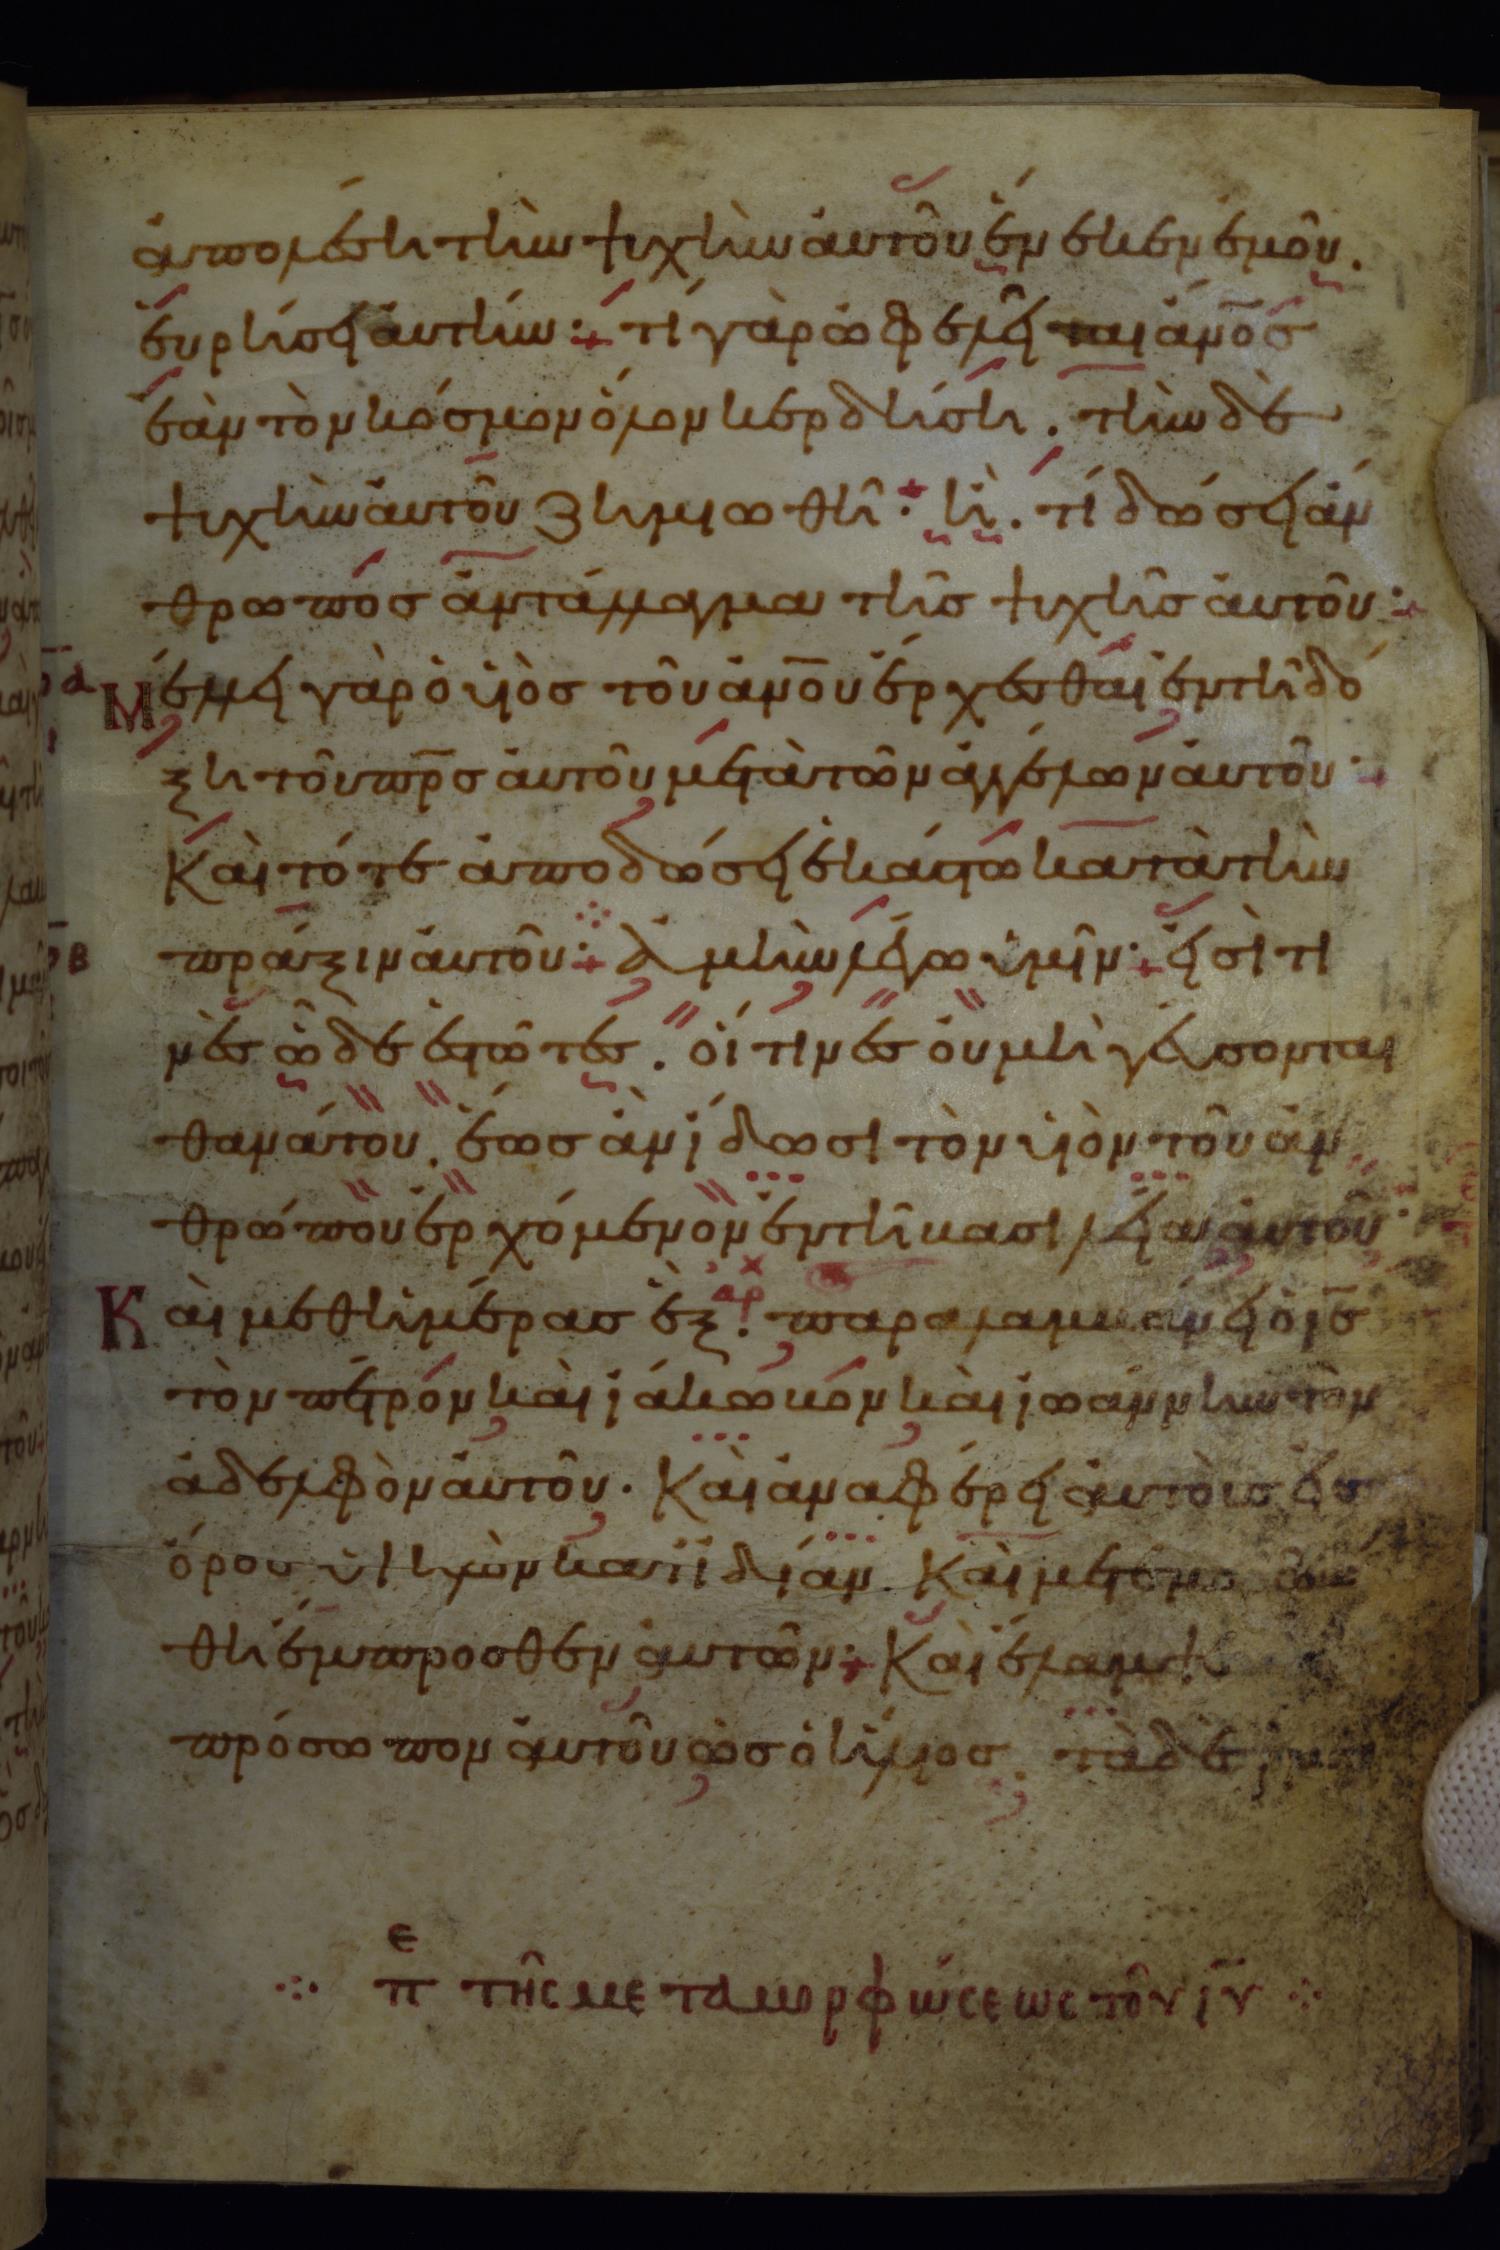 ἀπολέση τὴν ψυχὴν αὐτοῦ ἕνεκεν ἐμοῦ.
εὑρήσει αὐτήν· τί γὰρ ὠφελεῖται ἄνο̅ς
ἐὰν τὸν κόσμον ὅλον κερδήση. τὴν δὲ
ψυχὴν αὐτοῦ ζημιωθῆ· ἢ. τί δώσει ἄν
θρωπος ἀντάλλαγμα τῆς ψυχῆς αὐτοῦ·
ρα
Μέλλει γὰρ ὁ υἱὸς τοῦ ἀνο̅υ ἔρχεσθαι ἐν τῆ δό
ξη τοῦ πρ̅ς αὐτοῦ μετὰ τῶν ἀγγέλων αὐτοῦ·
Καὶ τότε ἀποδώσει ἑκάστω κατὰ τὴν
πρᾶξιν αὐτοῦ· ἀμὴν λέγω ὑμῖν· εἰσί τι
ρβ
νὲς ὧδε ἑστῶτες. οἵτινες οὐ μὴ γεύσονται
θανάτου. ἕως ἂν ἴδωσι τὸν υἱὸν τοῦ ἀν
θρώπου ἐρχόμενον ἐν τῆ βασιλεία αὐτοῦ·
αρχ
Καὶ μεθ ἡμέρας ἓξ. παραλαμβάνει ὁ ι̅ς
τὸν πέτρον καὶ ἰάκωβον καὶ ἰωάννην τὸν
ἀδελφὸν αὐτοῦ. Καὶ ἀναφέρει αὐτοὺς εἰς
ὄρος ὑψηλὸν κατ ἰδίαν. Καὶ μετεμορφώ
θη ἔμπροσθεν αὐτῶν· Καὶ ἔλαμψε
πρόσωπον αὐτοῦ ὡς ὁ ἥλιος. τὰ δὲ ἱμα
πε τῆς μεταμορφώσεως τοῦ ι̅υ